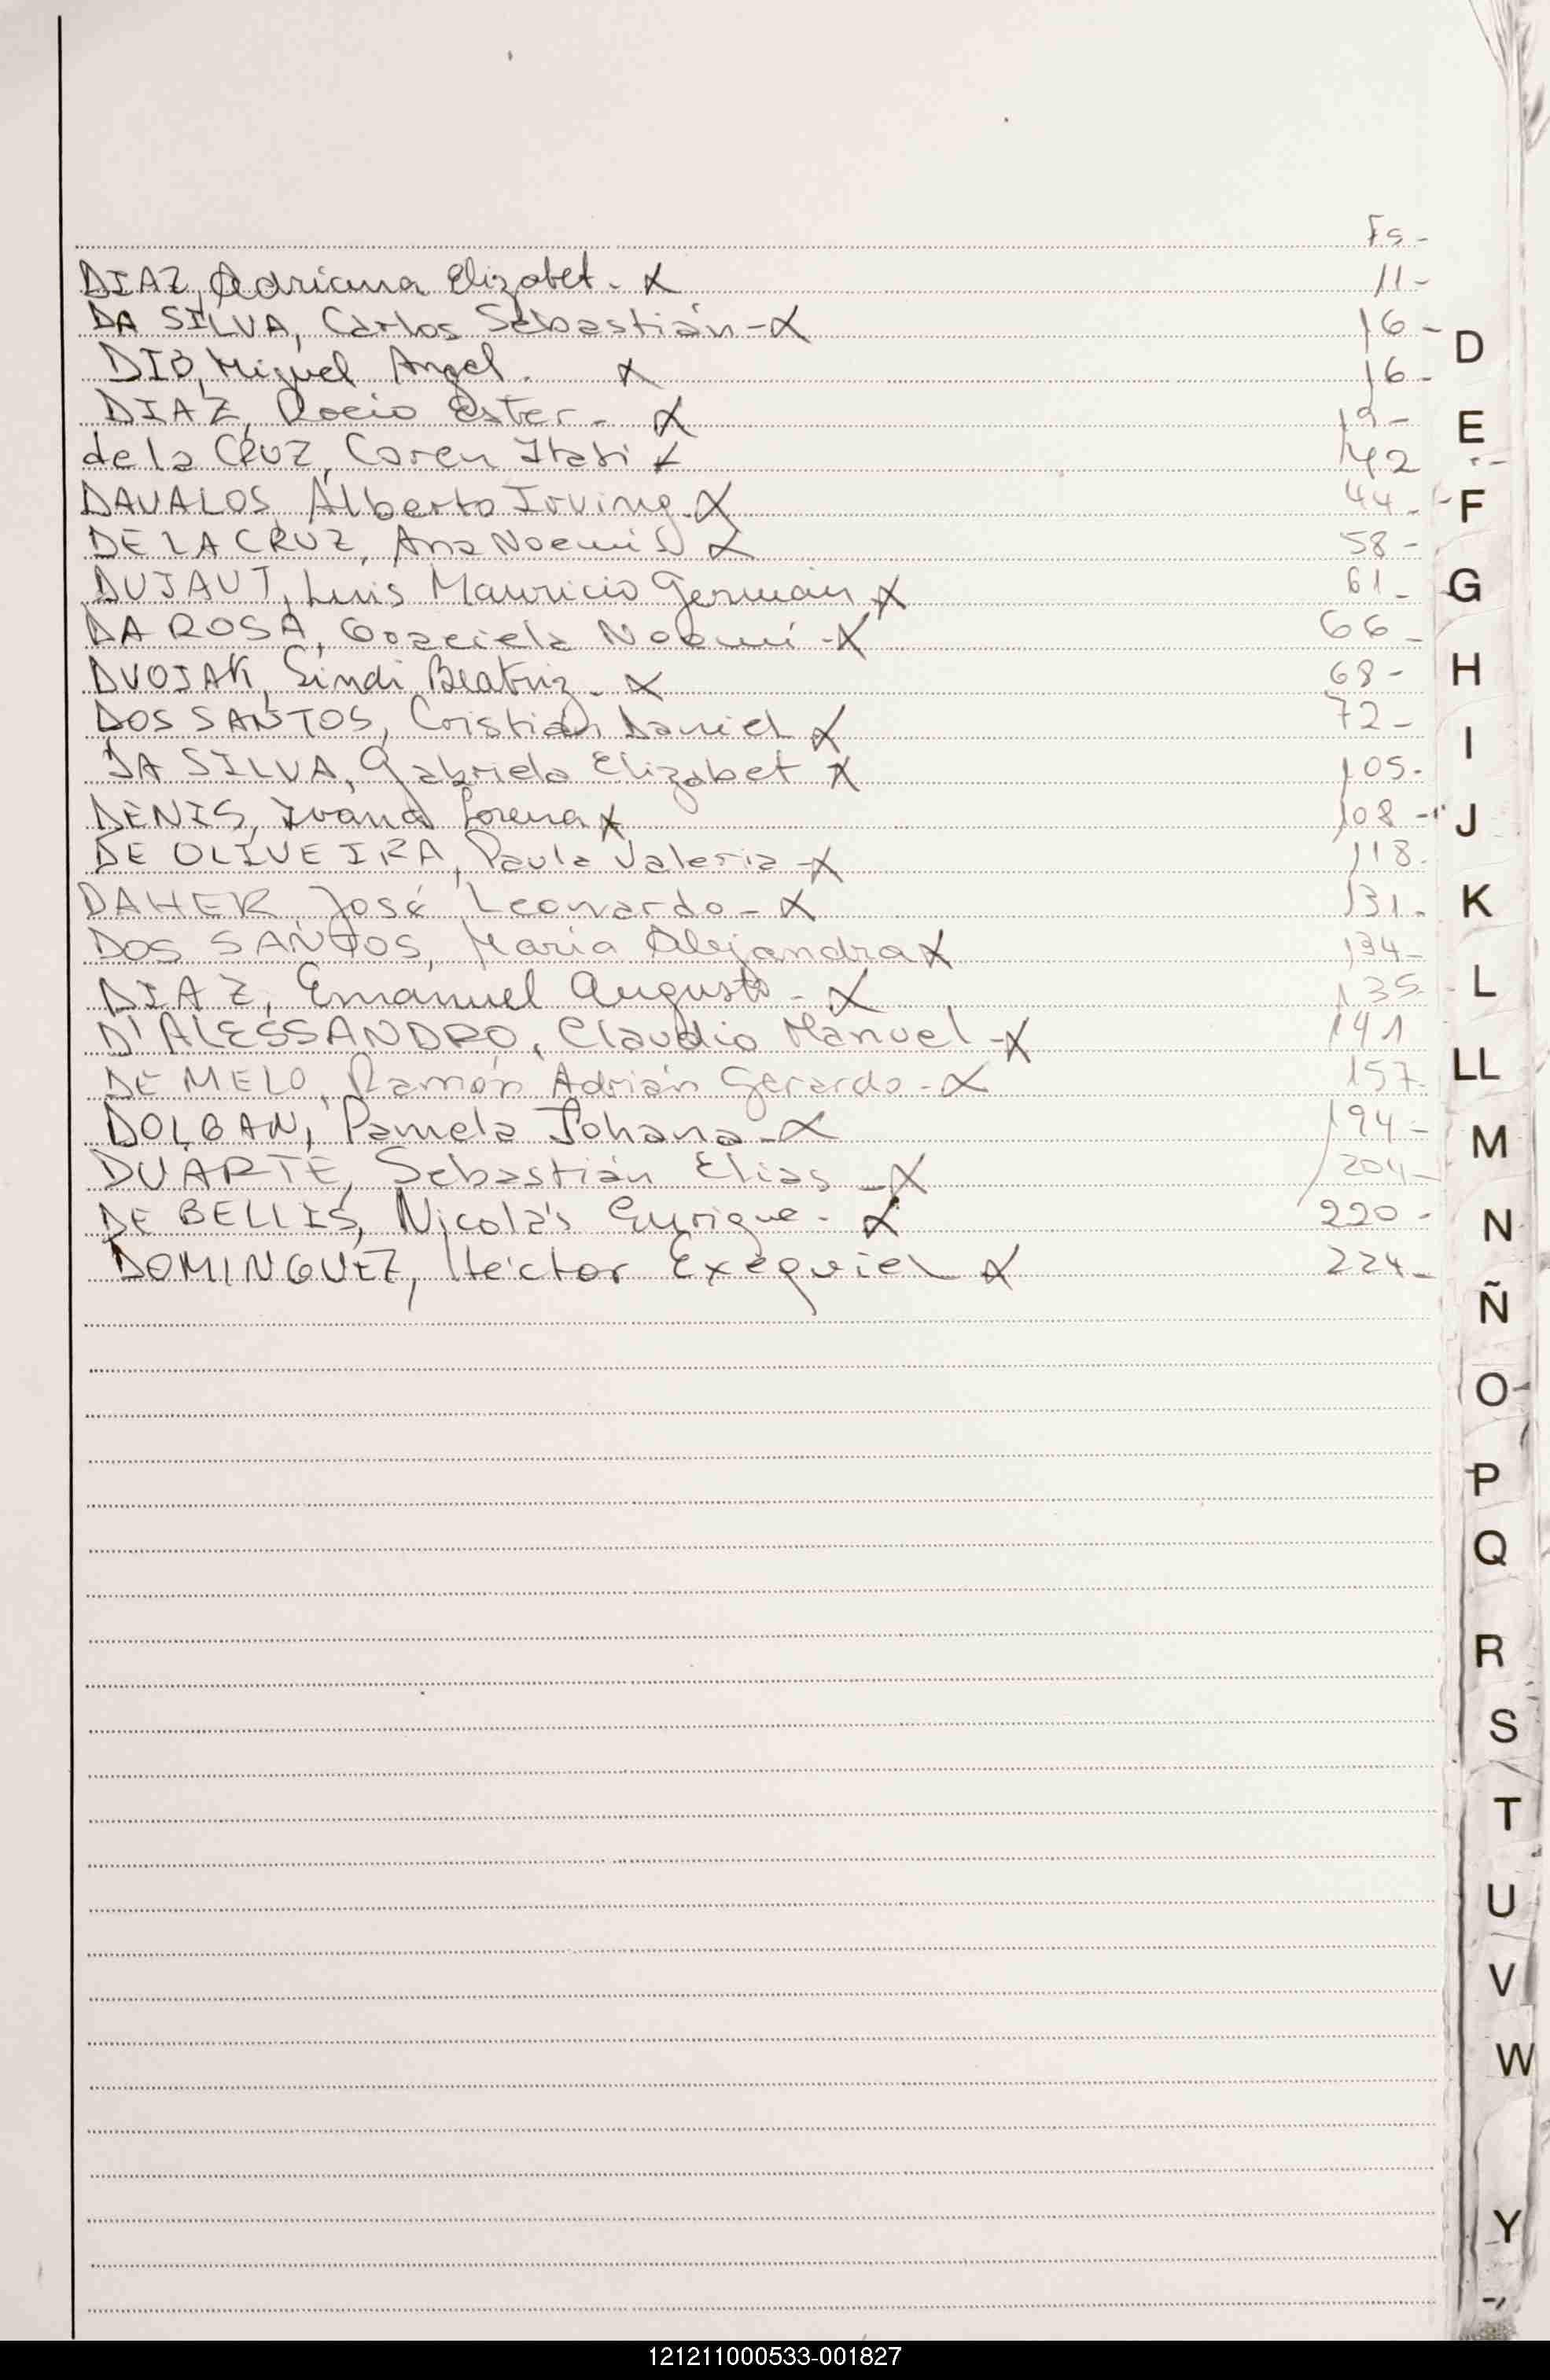 Fs -
DIAZ, Adriana Elizabet - X 11 -
DA SILVA, Carlos Sebastián - X 16 -
DIB, Miguel Angel. X 16 -
DIAZ, Rocio Ester - X 19 -
de la CRUZ, Coren Itati X 42
DAVALOS, Alberto Irving. X 44 -
DE LA CRUZ, Ana Noemi X 58 -
DUJAUT, Luis Mauricio Germán X 61 -
DA ROSA, Graciela Noemí - X 66 -
DVOJAK, Sindi Beatriz - X 68 -
DOS SANTOS, Cristian Daniel X 72 -
DA SILVA, Gabriela Elizabet X 105 -
DENIS, Ivana Lorena X 108 -
DE OLIVEIRA, Paula Valeria - X 118 -
DAHER, José Leonardo - X 131 -
DOS SANTOS, María Alejandra X 134 -
DIAZ, Emanuel Augusto - X 135
D'ALESSANDRO, Claudio Manuel - X 141
DE MELO, Ramón Adrián Gerardo - X 157 -
DOLGAN, Pamela Johana - X 194 -
DUARTE, Sebastián Elias - X 204 -
DE BELLIS, Nicolás Enrique - X 220 -
DOMINGUEZ, Héctor Exequiel X 224 -
D
E
F
G
H
I
J
K
L
LL
M
N
Ñ
O
P
Q
R
S
T
U
V
W
Y
121211000533-001827